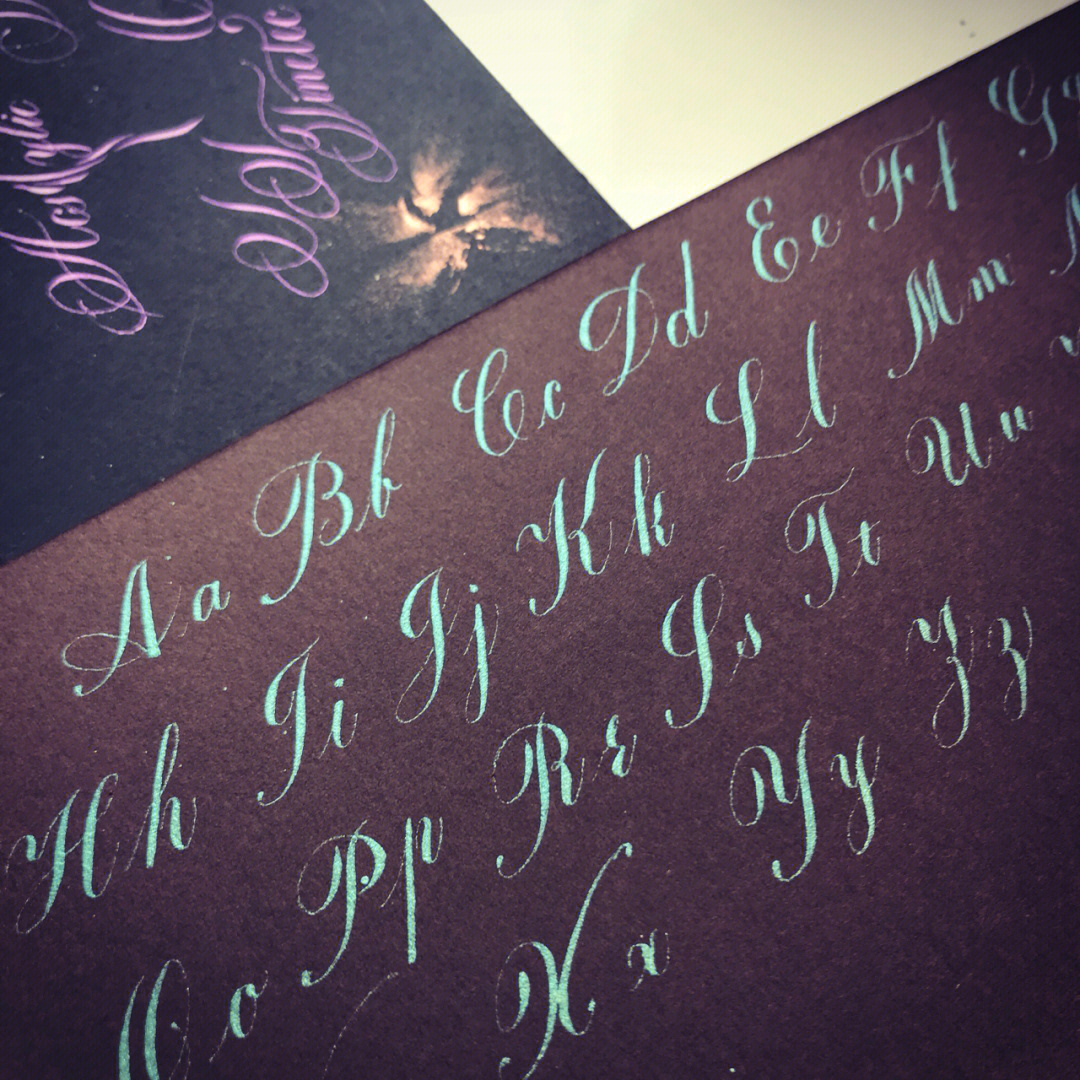 Aa Bb Cc Dd Ee Ff G
Hh Ii Jj Kk Ll Mm
Oo Pp Rr Ss Tt Uu
Xx Yy Zz